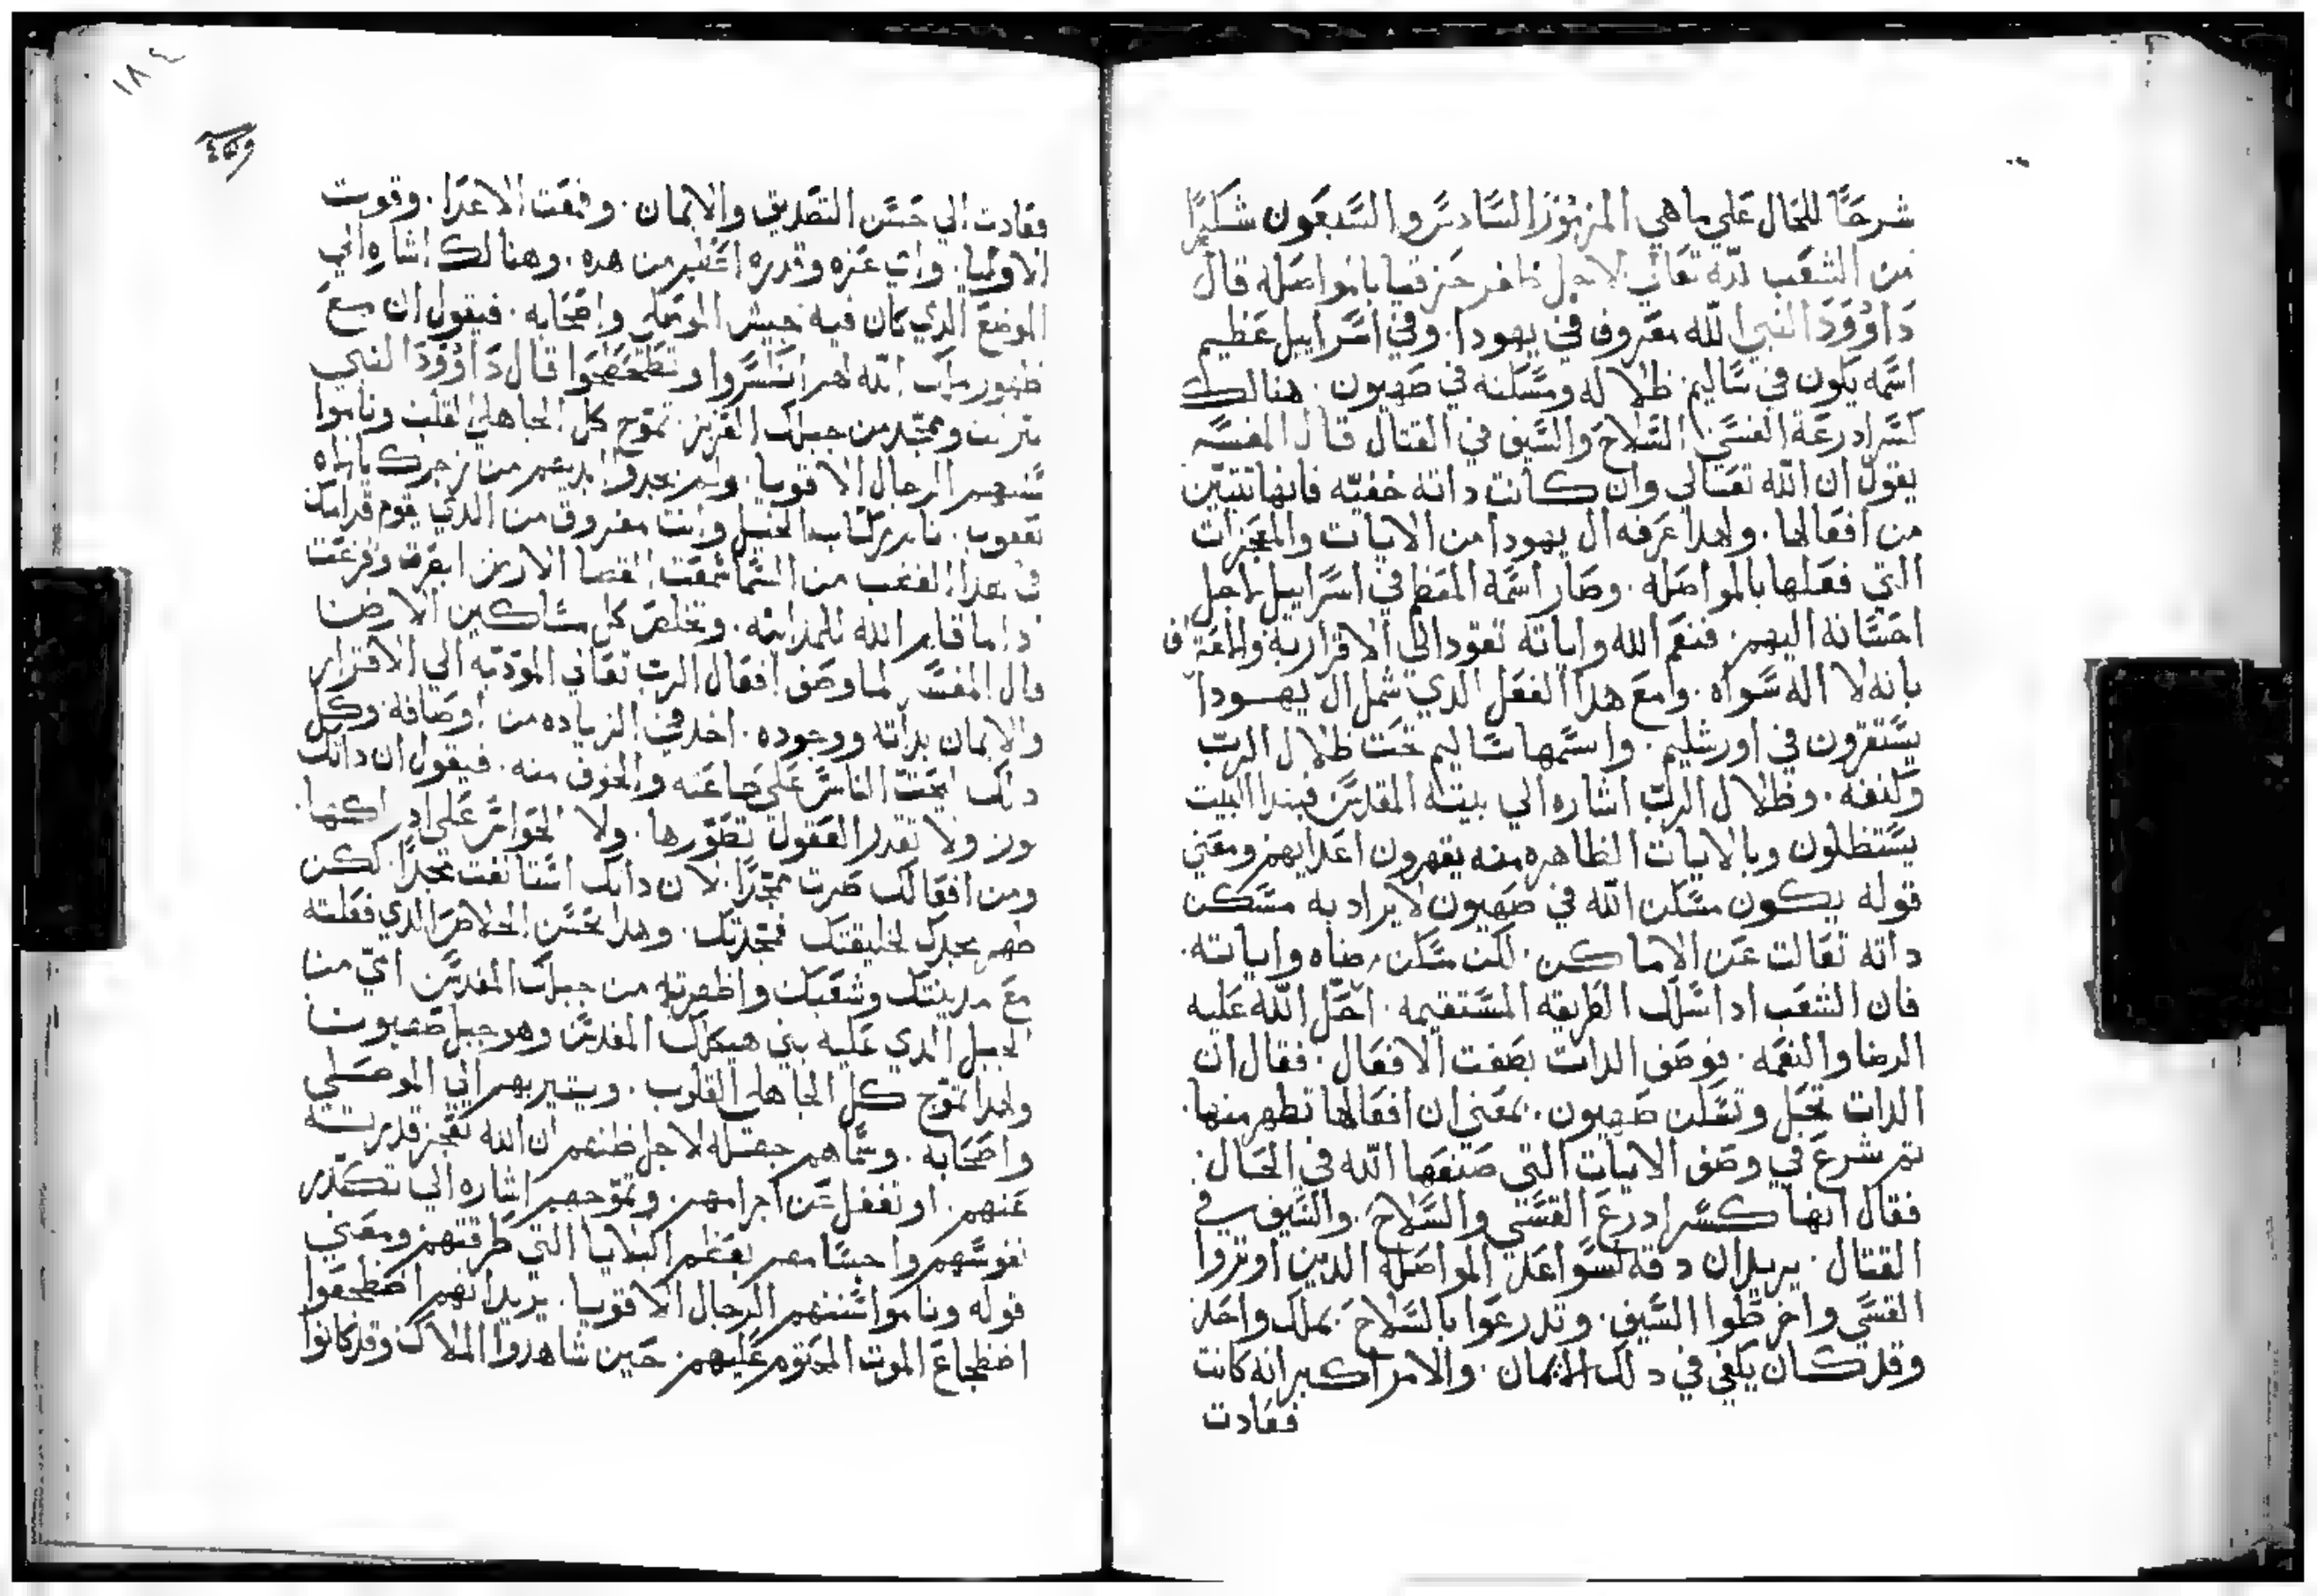 شرحًا للحال علي ما هي المزمور السادس والسبعون شكرًا
من الشعب لله تعالي لاجل ظفر حزقيا بالمواصله قال
داوود النبي الله معروف في يهودا. وفي اسراييل عظيم
اسمه يكون في ساليم. ظلاله ومسكنه في صهيون. هنالك
كسر ادرعة القسي السلاح والسيف في القتال قال المفسر
يقول ان الله تعالي وان كانت داته خفيه فانها تتبين
من افعالها. ولهدا عرفه ال يهودا من الايات والمعجزات
التي فعلها بالمواصله. وصار اسمه المعظم في اسراييل لاجل
احسانه اليهم. فنعم الله واياته تعود الي الاقرار به والاعتراف
بانه لا اله سواه. ومع هدا الفعل الدي شمل ال يهودا
يستقرون في اورشليم. واسمها ساليم تحت ظلال الرب
وكنفه. وظلال الرب اشاره الي بيته المقدس فبهدا البيت
يستظلون وبالايات الظاهره منه يقهرون اعدايهم ومعني
قوله يكون مسكن الله في صهيون لا يراد به مسكن
داته تعالت عن الاماكن. لكن مسكن رضاه واياته.
فان الشعب ادا سلك الطريقه المستقيمه. احل الله عليه
الرضا والنعمه. فوصف الدات بصفت الافعال. فقال ان
الدات تحل وتسكن صهيون. بمعني ان افعالها تظهر منها.
تم شرع في وصف الايات التي صنعها الله في الحال.
فقال انها كسر ادرع القسي والسلاح. والسيف في
القتال. يريد ان دقه لسواعد المواصله الدين اوتروا
القسي واخرطوا السيف. وتدرعوا بالسلاح. بملك واحد
وقد كان يكفي في دلك الايمان. والامر اكبر انه كانت
فعادت
١٨٤
فعادت الي حسن التصديق والايمان. وقمعت الاعدا. وقويت
الاوليا. واي عزه وقدره اعظم من هده. وهنالك اشاره الي
الموضع الدي كان فيه جيش الموصلي واصحابه. فيقول ان مع
ظهور ملاك الله لهم انكسروا وتطحطحوا قال داوود النبي
نيرت وممجد من جبلك العزيز. تموج كل الجاهلي القلب وناموا
سنتهم الرجال الاقويا. ولم يجدوا ايديهم من زجرك يا اله
يعقوب. نام ركاب الخيل وانت مفروق من الدي يقوم قدامك
في هدا الغضب من السما سمعت القضا الارض ابصرت وفزعت
ادا ما قام الله للمداينه. وتخلص كل مساكين الارض
قال المفسر لما وصف افعال الرب تعالي المودته الي الاقرار
والايمان بداته ووجوده. اخد في الزياده من اوصافه. وكل
دلك ليحث الناس علي طاعته والخوف منه. فيقول ان داتك
نور ولا تقدر العقول تصورها. ولا الحواس علي ادراكها.
ومن افعالك صرت ممجدًا. لان داتك استانفت مجدًا. لكن
ظهر مجدك لخليقتك فمجدتك. وهدا بحسن الخلاص الدي فعلته
مع مدينتك وشعبك واظهرته من جبلك المقدس اي من
الجبل الدي عليه بني هيكلك المقدس وهو جبل صهيون
ولهدا تموج كل الجاهلي القلوب. ويشير بهم الي الموصلي
واصحابه. وسماهم جهله لاجل ظنهم ان الله تعجز قدرته
عنهم. او تغفل عن اجرامهم. وتموجهم اشاره الي تكدر
نفوسهم واجسامهم بعظم البلايا التي طرقتهم ومعني
قوله وناموا سنتهم الرجال الاقويا. يريد انهم اضطجعوا
اضطجاع الموت المحتوم عليهم. حين شاهدوا الملاك وقد كانوا